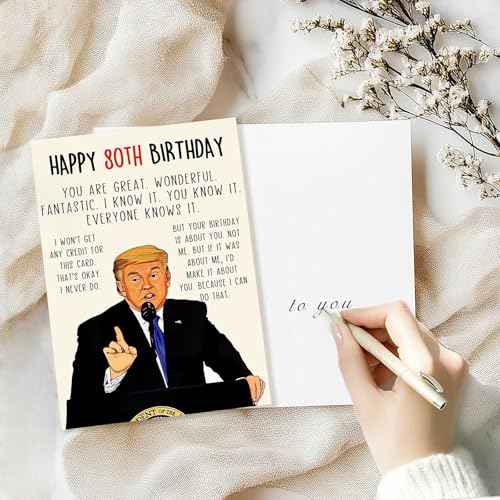 HAPPY 80TH BIRTHDAY
YOU ARE GREAT. WONDERFUL.
FANTASTIC. I KNOW IT. YOU KNOW IT.
EVERYONE KNOWS IT.
I WON'T GET
ANY CREDIT FOR
THIS CARD.
THAT'S OKAY.
I NEVER DO.
BUT YOUR BIRTHDAY
IS ABOUT YOU. NOT
ME. BUT IF IT WAS
ABOUT ME, I'D
MAKE IT ABOUT
YOU. BECAUSE I CAN
DO THAT.
to you